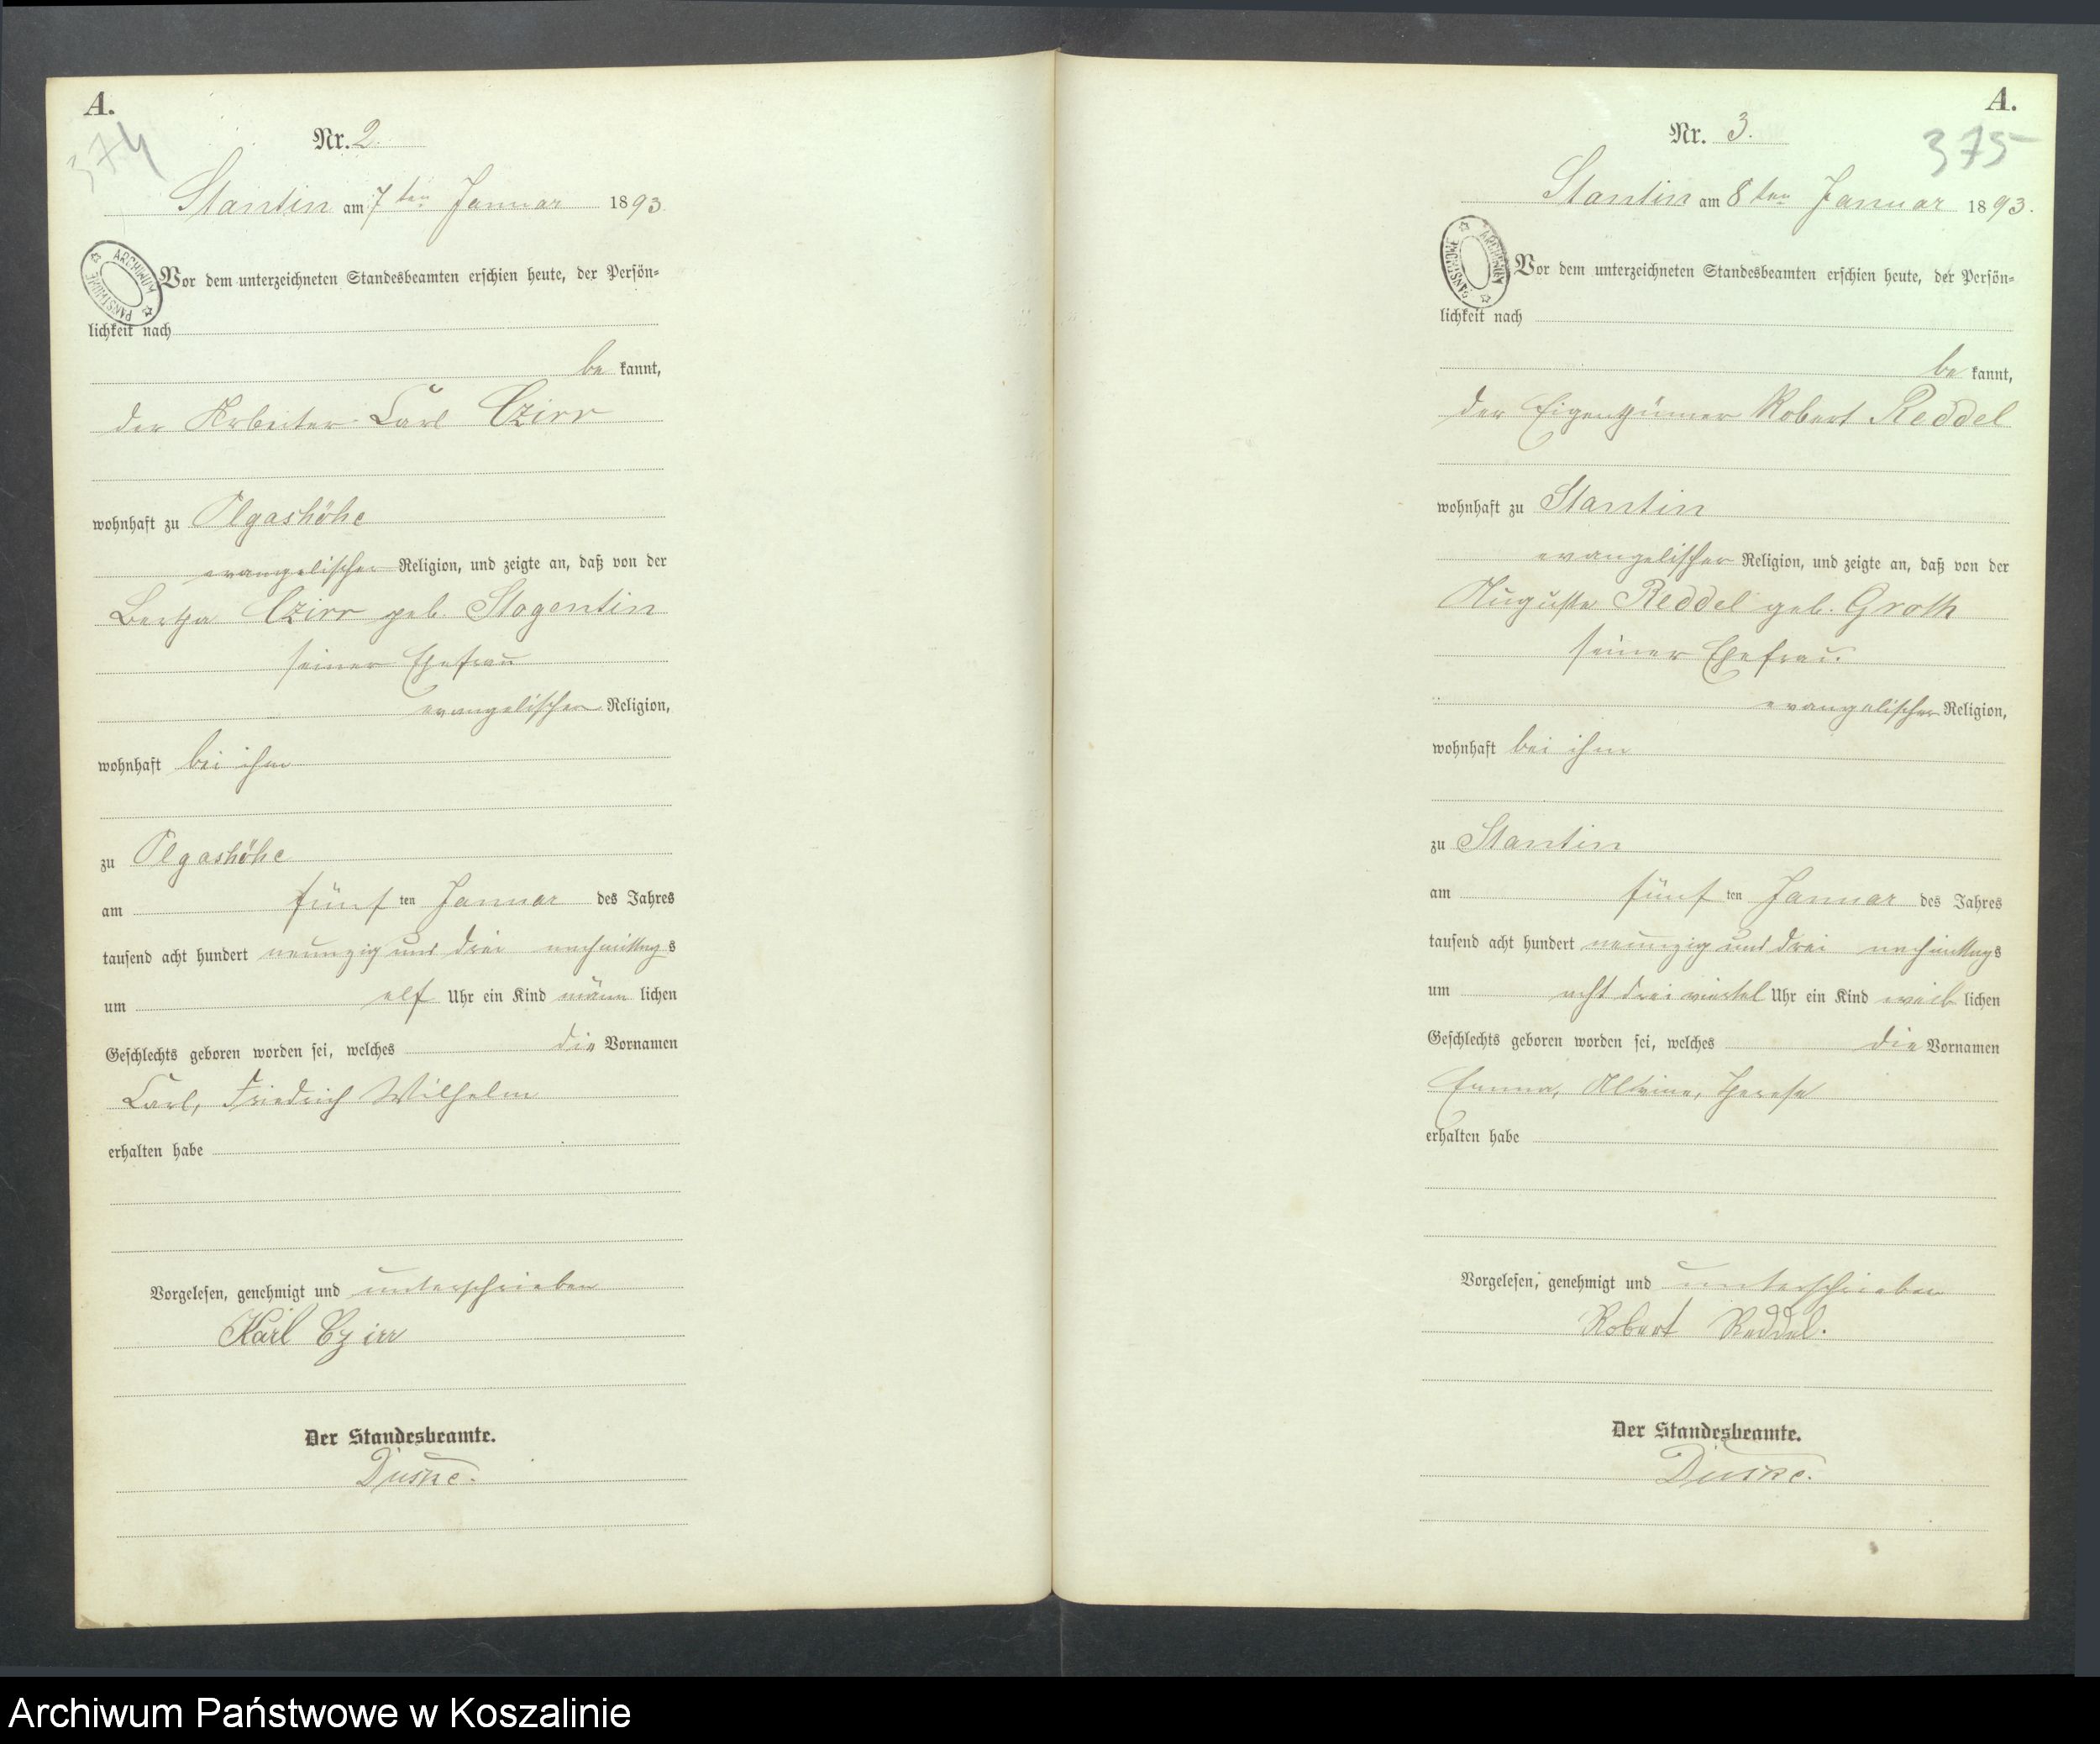 A.
374
Nr. 2.
Stantin am 7ten Januar 1893.
ARCHIWUM PAŃSTWOWE
Vor dem unterzeichneten Standesbeamten erschien heute, der Persön=
lichkeit nach
be kannt,
der Arbeiter Carl Czirr
wohnhaft zu Olgashöhe
evangelischer Religion, und zeigte an, daß von der
Bertha Czirr geb. Stogentin
seiner Ehefrau
evangelischer Religion,
wohnhaft bei ihm
zu Olgashöhe
am fünf ten Januar des Jahres
tausend acht hundert neunzig und drei nachmittags
um elf Uhr ein Kind männ lichen
Geschlechts geboren worden sei, welches die Vornamen
Carl, Friedrich Wilhelm
erhalten habe
Vorgelesen, genehmigt und unterschrieben
Karl Czirr
Der Standesbeamte.
A.
375
Nr. 3.
Stantin am 8ten Januar 1893.
ARCHIWUM PAŃSTWOWE
Vor dem unterzeichneten Standesbeamten erschien heute, der Persön=
lichkeit nach
be kannt,
der Eigenthümer Robert Reddel
wohnhaft zu Stantin
evangelischer Religion, und zeigte an, daß von der
Auguste Reddel geb. Groth
seiner Ehefrau
evangelischer Religion,
wohnhaft bei ihm
zu Stantin
am fünf ten Januar des Jahres
tausend acht hundert neunzig und drei nachmittags
um acht drei viertel Uhr ein Kind weib lichen
Geschlechts geboren worden sei, welches die Vornamen
Emma, Alwine, Therese
erhalten habe
Vorgelesen, genehmigt und unterschrieben
Robert Reddel.
Der Standesbeamte.
Archiwum Państwowe w Koszalinie